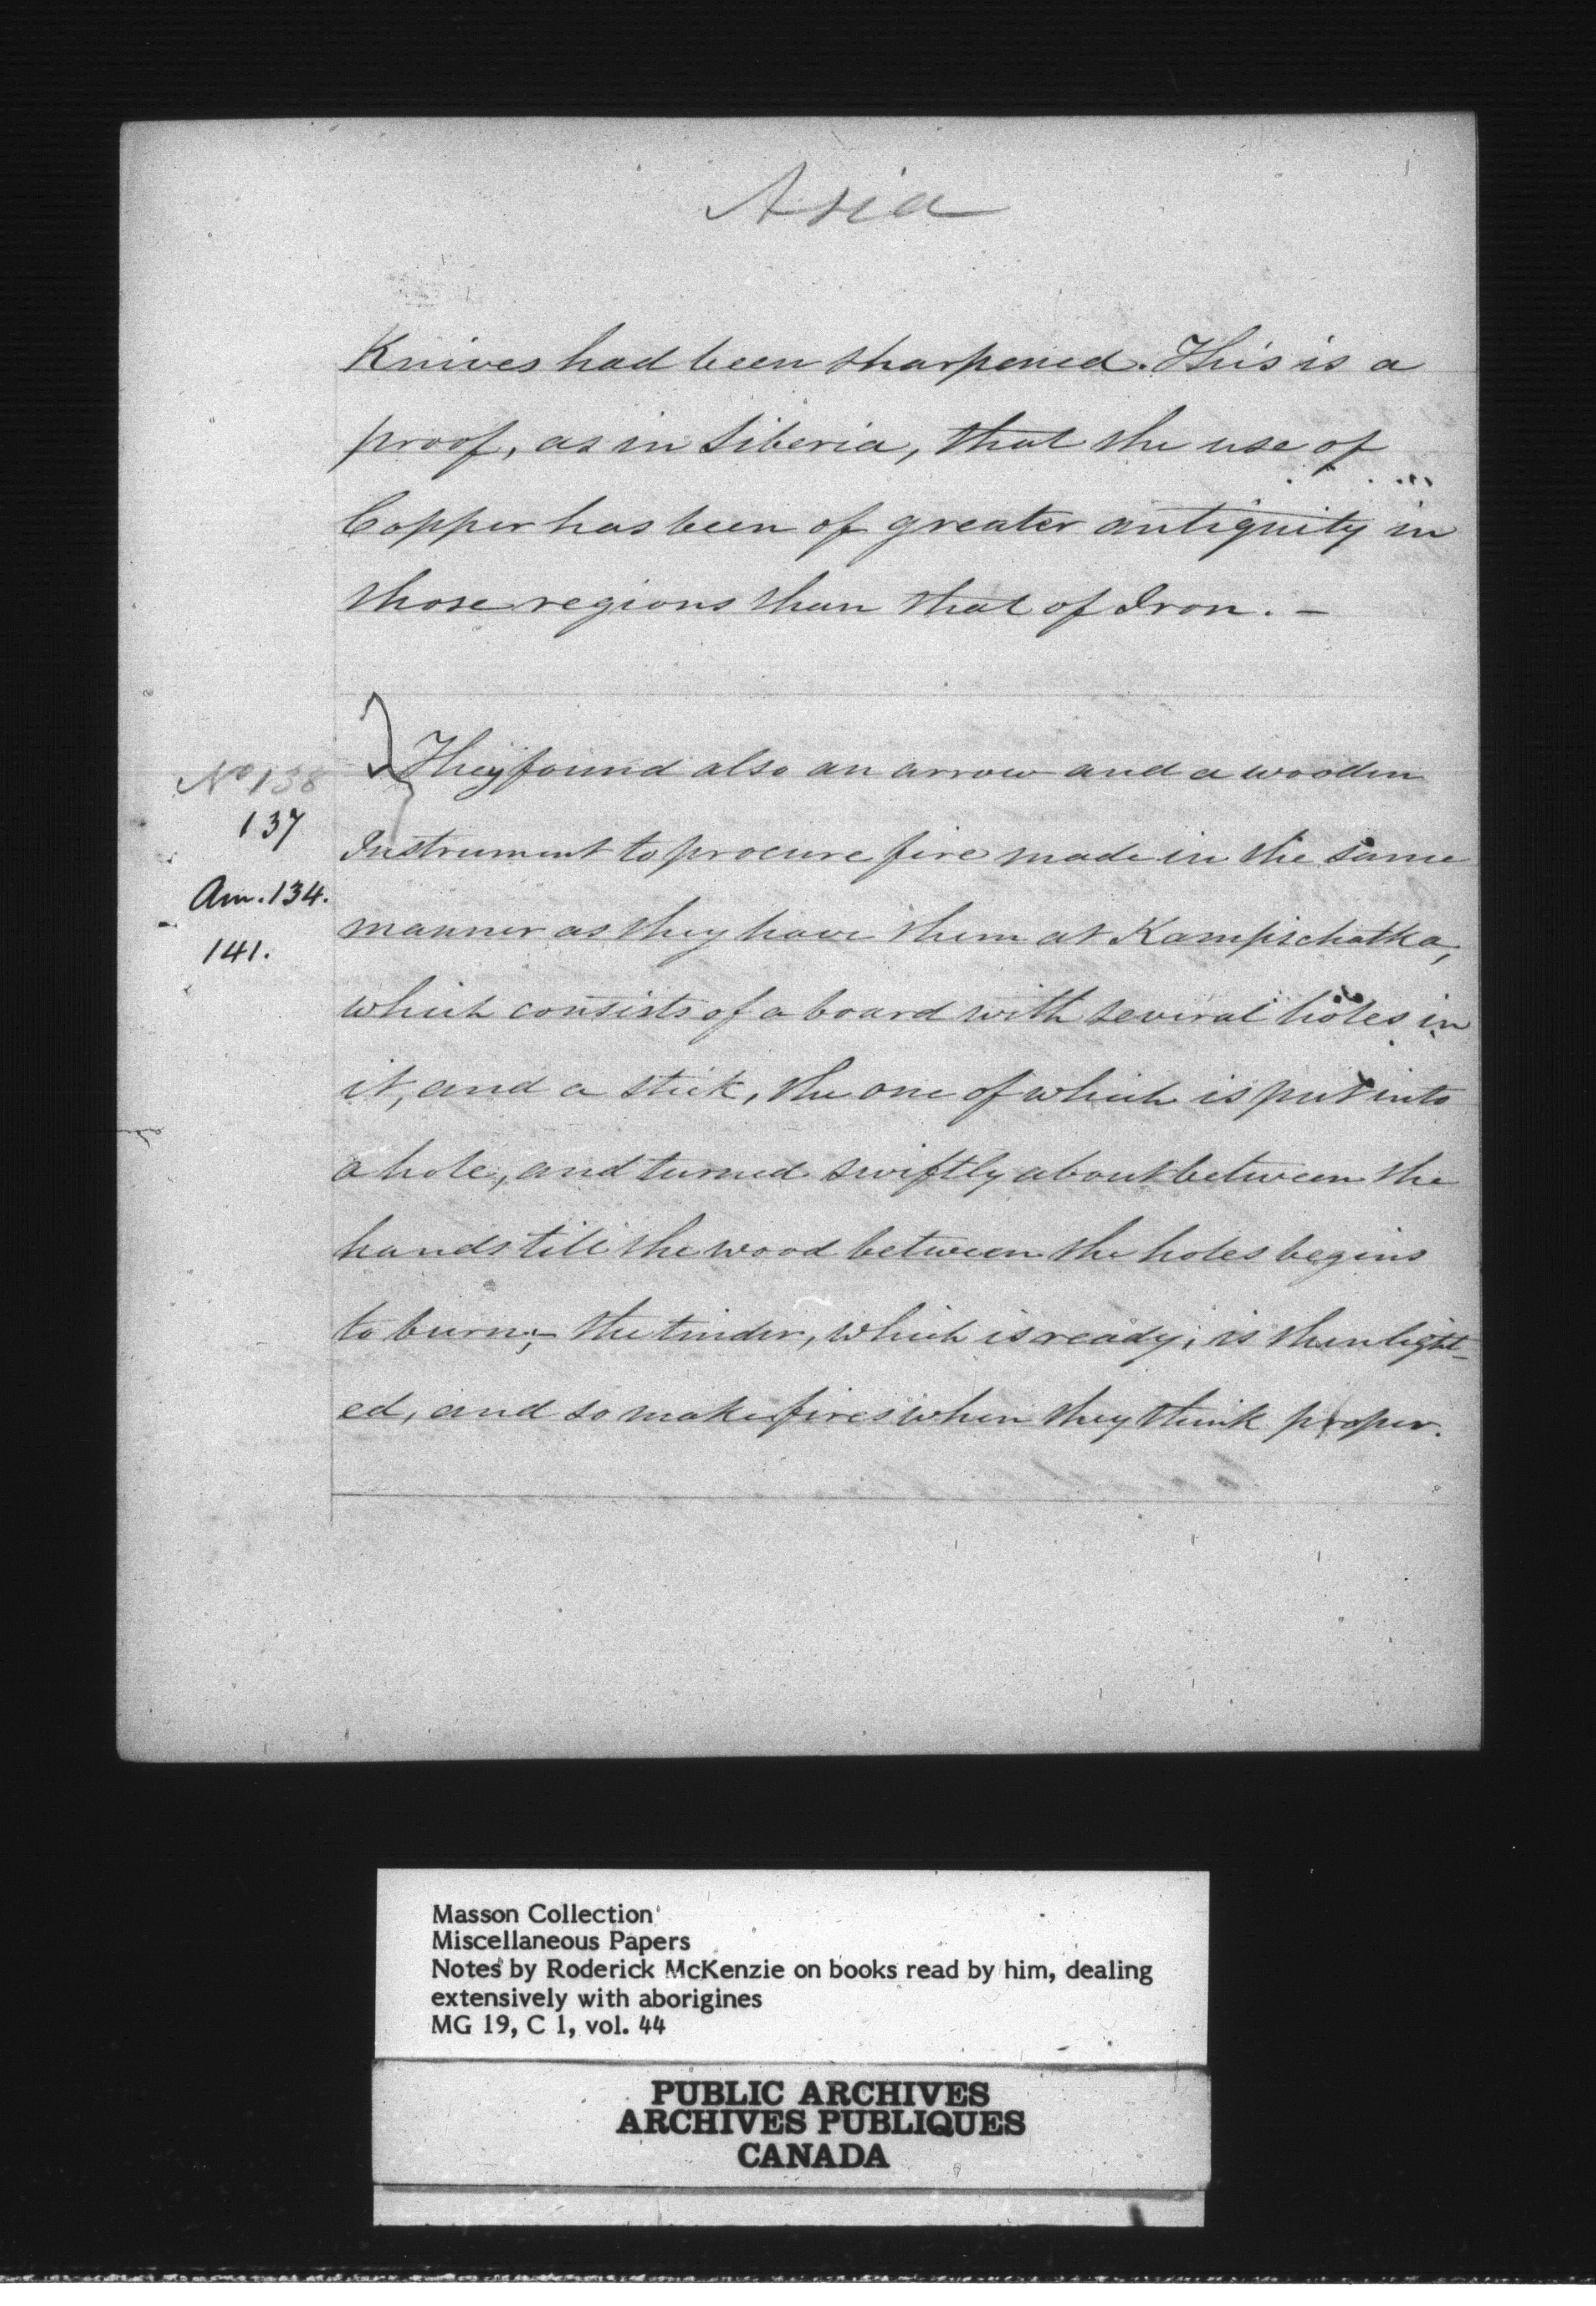 Asia
Knives had been sharpened. This is a
proof, as in Siberia, that the use of
Copper has been of greater antiquity in
those regions than that of Iron. –
They found also an arrow and a wooden
No 138
137
Instrument to procure fire made in the same
Am. 134.
manner as they have them at Kampschatka,
141.
which consists of a board with several holes in
it, and a stick, the one of which is put into
a hole, and turned swiftly about between the
hands till the wood between the holes begins
to burn;– the tinder, which is ready, is then light-
ed, and so make fires when they think proper.
Masson Collection
Miscellaneous Papers
Notes by Roderick McKenzie on books read by him, dealing
extensively with aborigines
MG 19, C 1, vol. 44
PUBLIC ARCHIVES
ARCHIVES PUBLIQUES
CANADA